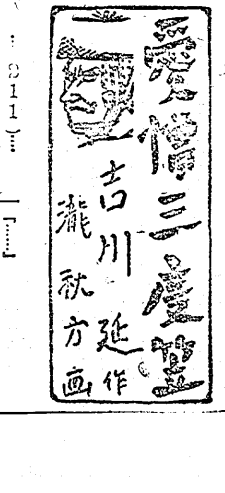 愛憎三度笠
吉川 延作
瀧秋方画